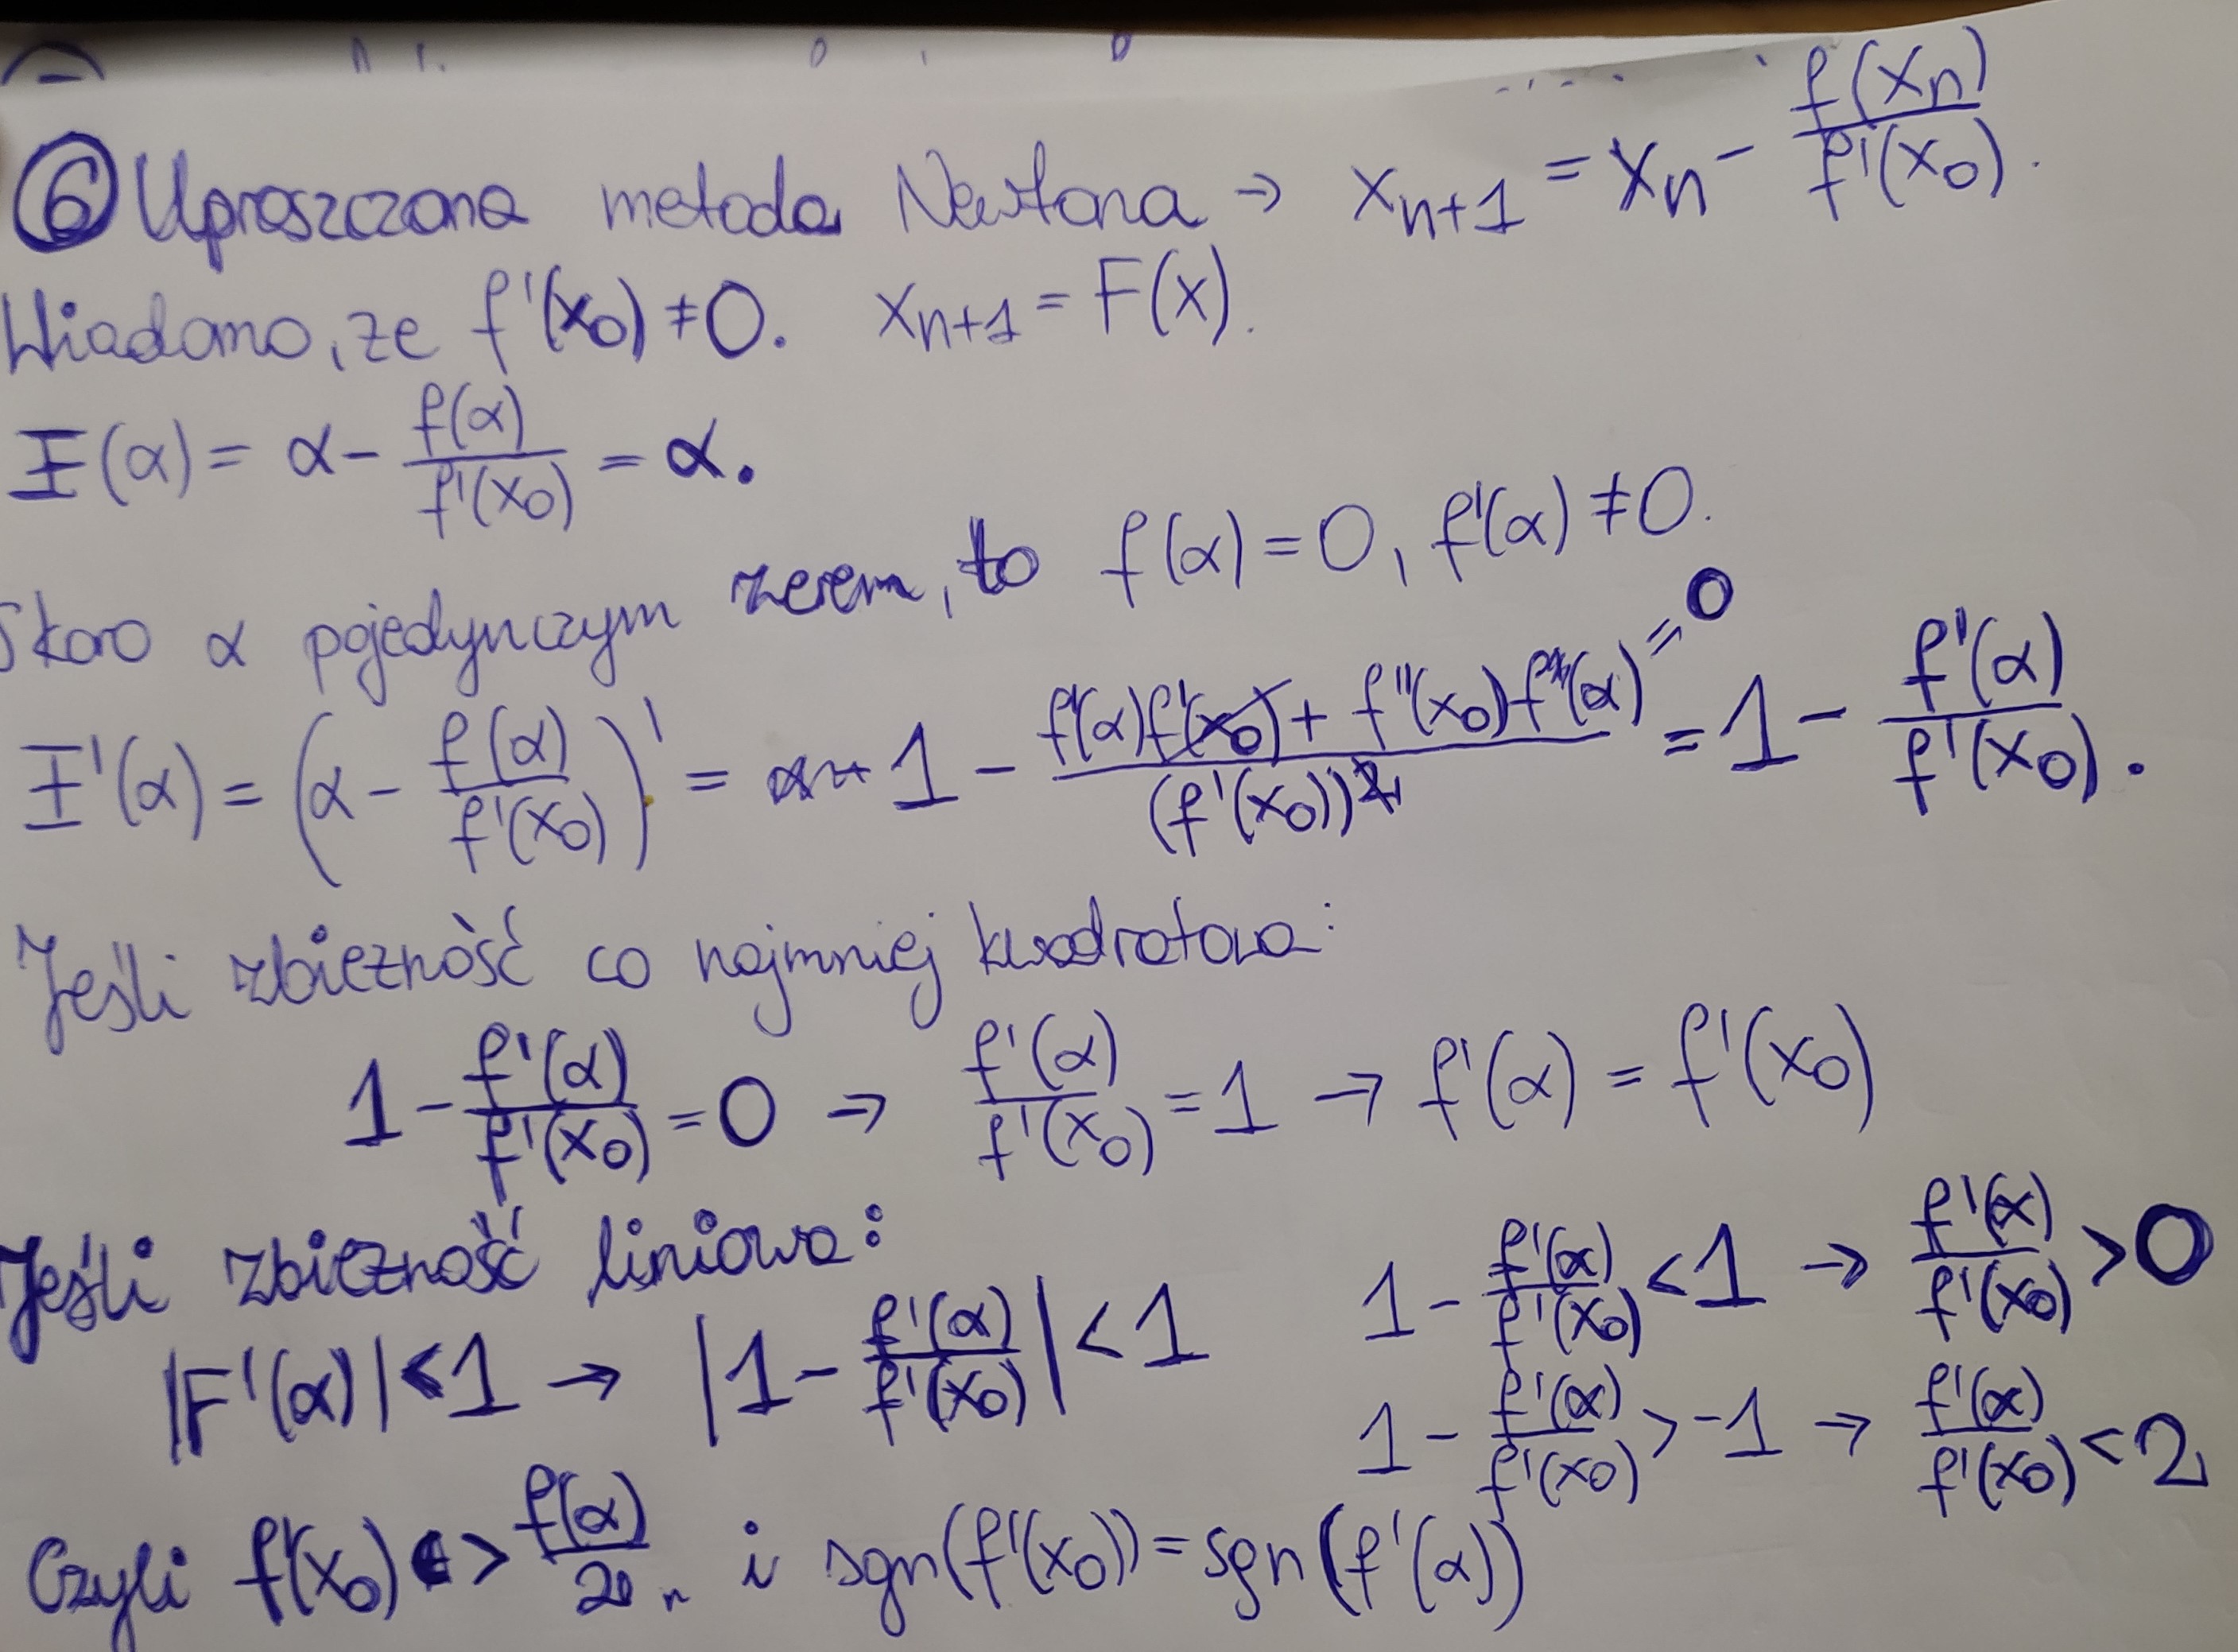 ⑥ Uproszczona metoda Newtona → xₙ₊₁ = xₙ - f(xₙ)/f'(x₀).
Wiadomo, że f'(x₀) ≠ 0. xₙ₊₁ = F(x).
F(α) = α - f(α)/f'(x₀) = α.
Skoro α pojedynczym zerem, to f(α) = 0, f'(α) ≠ 0.
F'(α) = (α - f(α)/f'(x₀))' = 1 - (f'(α)f'(x₀) + f''(x₀)f(α))/(f'(x₀))² = 1 - f'(α)/f'(x₀).
= 0
Jeśli zbieżność co najmniej kwadratowa:
1 - f'(α)/f'(x₀) = 0 → f'(α)/f'(x₀) = 1 → f'(α) = f'(x₀)
Jeśli zbieżność liniowa:
|F'(α)| < 1 → |1 - f'(α)/f'(x₀)| < 1
1 - f'(α)/f'(x₀) < 1 → f'(α)/f'(x₀) > 0
1 - f'(α)/f'(x₀) > -1 → f'(α)/f'(x₀) < 2
Czyli f'(x₀) > f'(α)/2 i sgn(f'(x₀)) = sgn(f'(α))